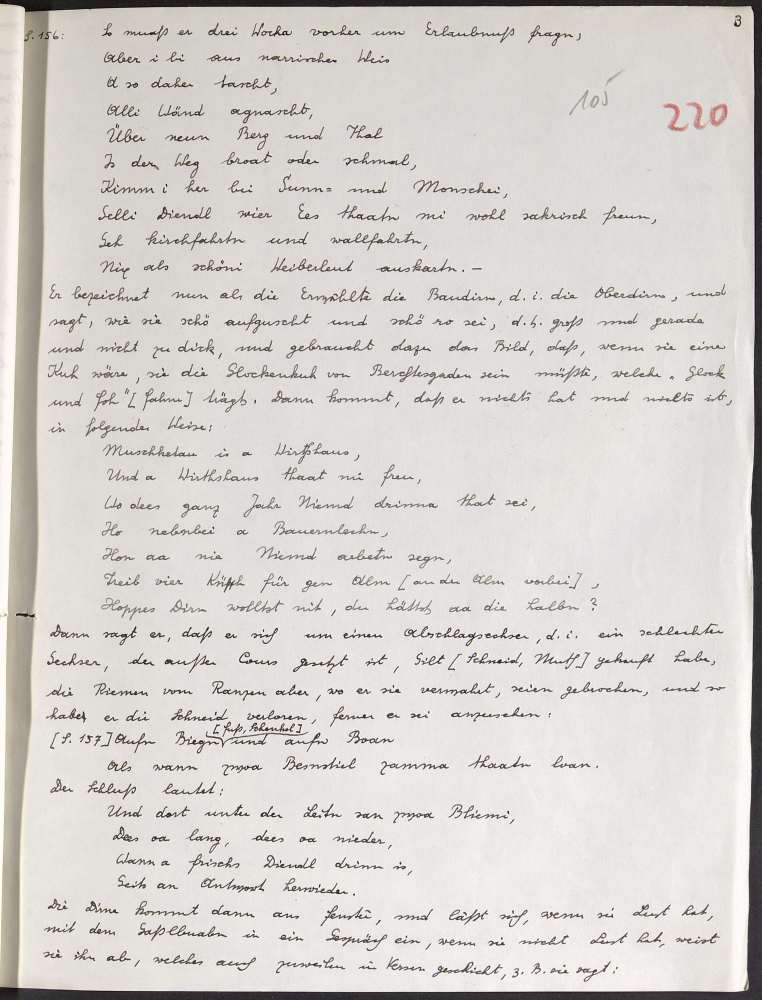 3
S. 156: So muaß er drei Wocha vorher um Erlaubnuß fragn,
Aber i bi aus narrischer Weis
A so daher tascht,
Alli Wänd agnascht,
105
220
Über neun Berg und Thal
Is der Weg broat oder schmal,
Kimm i her bei Sunn= und Monschei,
Selli Diendl wier Ees thaatn mi wohl sakrisch freun,
Geh kirchfahrtn und wallfahrtn,
Nix als schöni Weiberleut auskartn. –
Er bezeichnet nun als die Erwählte die Baudirn, d. i. die Oberdirne, und
sagt, wie sie schö aufguscht und schö ro sei, d. h. groß und gerade
und nicht zu dick, und gebraucht dazu das Bild, daß, wenn sie eine
Kuh wäre, sie die Glockenkuh von Berchtesgaden sein müßte, welche „Glock
und Foh" [Fahne] trägt. Dann kommt, daß er nichts hat und nichts ist,
in folgender Weise:
Muschketau is a Wirthshaus,
Und a Wirthshaus thaat mi freu,
Wo dees ganz Jahr Niemd drinna that sei,
Ho nebnbei a Bauernlechn,
Hon aa nie Niemd arbetn segn,
Treib vier Küah für gen Alm [an der Alm vorbei],
Hoppes Dirn wolltst nit, du hättst aa die halbn?
Dann sagt er, daß er sich um einen Abschlagsechser, d. i. ein schlechter
Sechser, der außer Cours gesetzt ist, Gilt [Schneid, Muth] gekauft habe,
die Riemen vom Ranzen aber, wo er sie vermahrt, seien gebrochen, und so
habe er die Schneid verloren, ferner er sei anzusehen:
[Fuß, Schenkel]
[S. 157] Aufn Biegn und aufn Boan
Als wann zwoa Besnstiel zamma thaatn loan.
Der Schluß lautet:
Und dort unter der Leitn san zwoa Bliemi,
Dees oa lang, dees oa nieder,
Wann a frischs Diendl drinn is,
Geits an Antwort herwieder.
Die Dirne kommt dann ans Fenster, und läßt sich, wenn sie Lust hat,
mit dem Gaßlbuabn in ein Gespräch ein, wenn sie nicht Lust hat, weist
sie ihn ab, welches auch zuweilen in Versen geschieht, z. B. sie sagt: